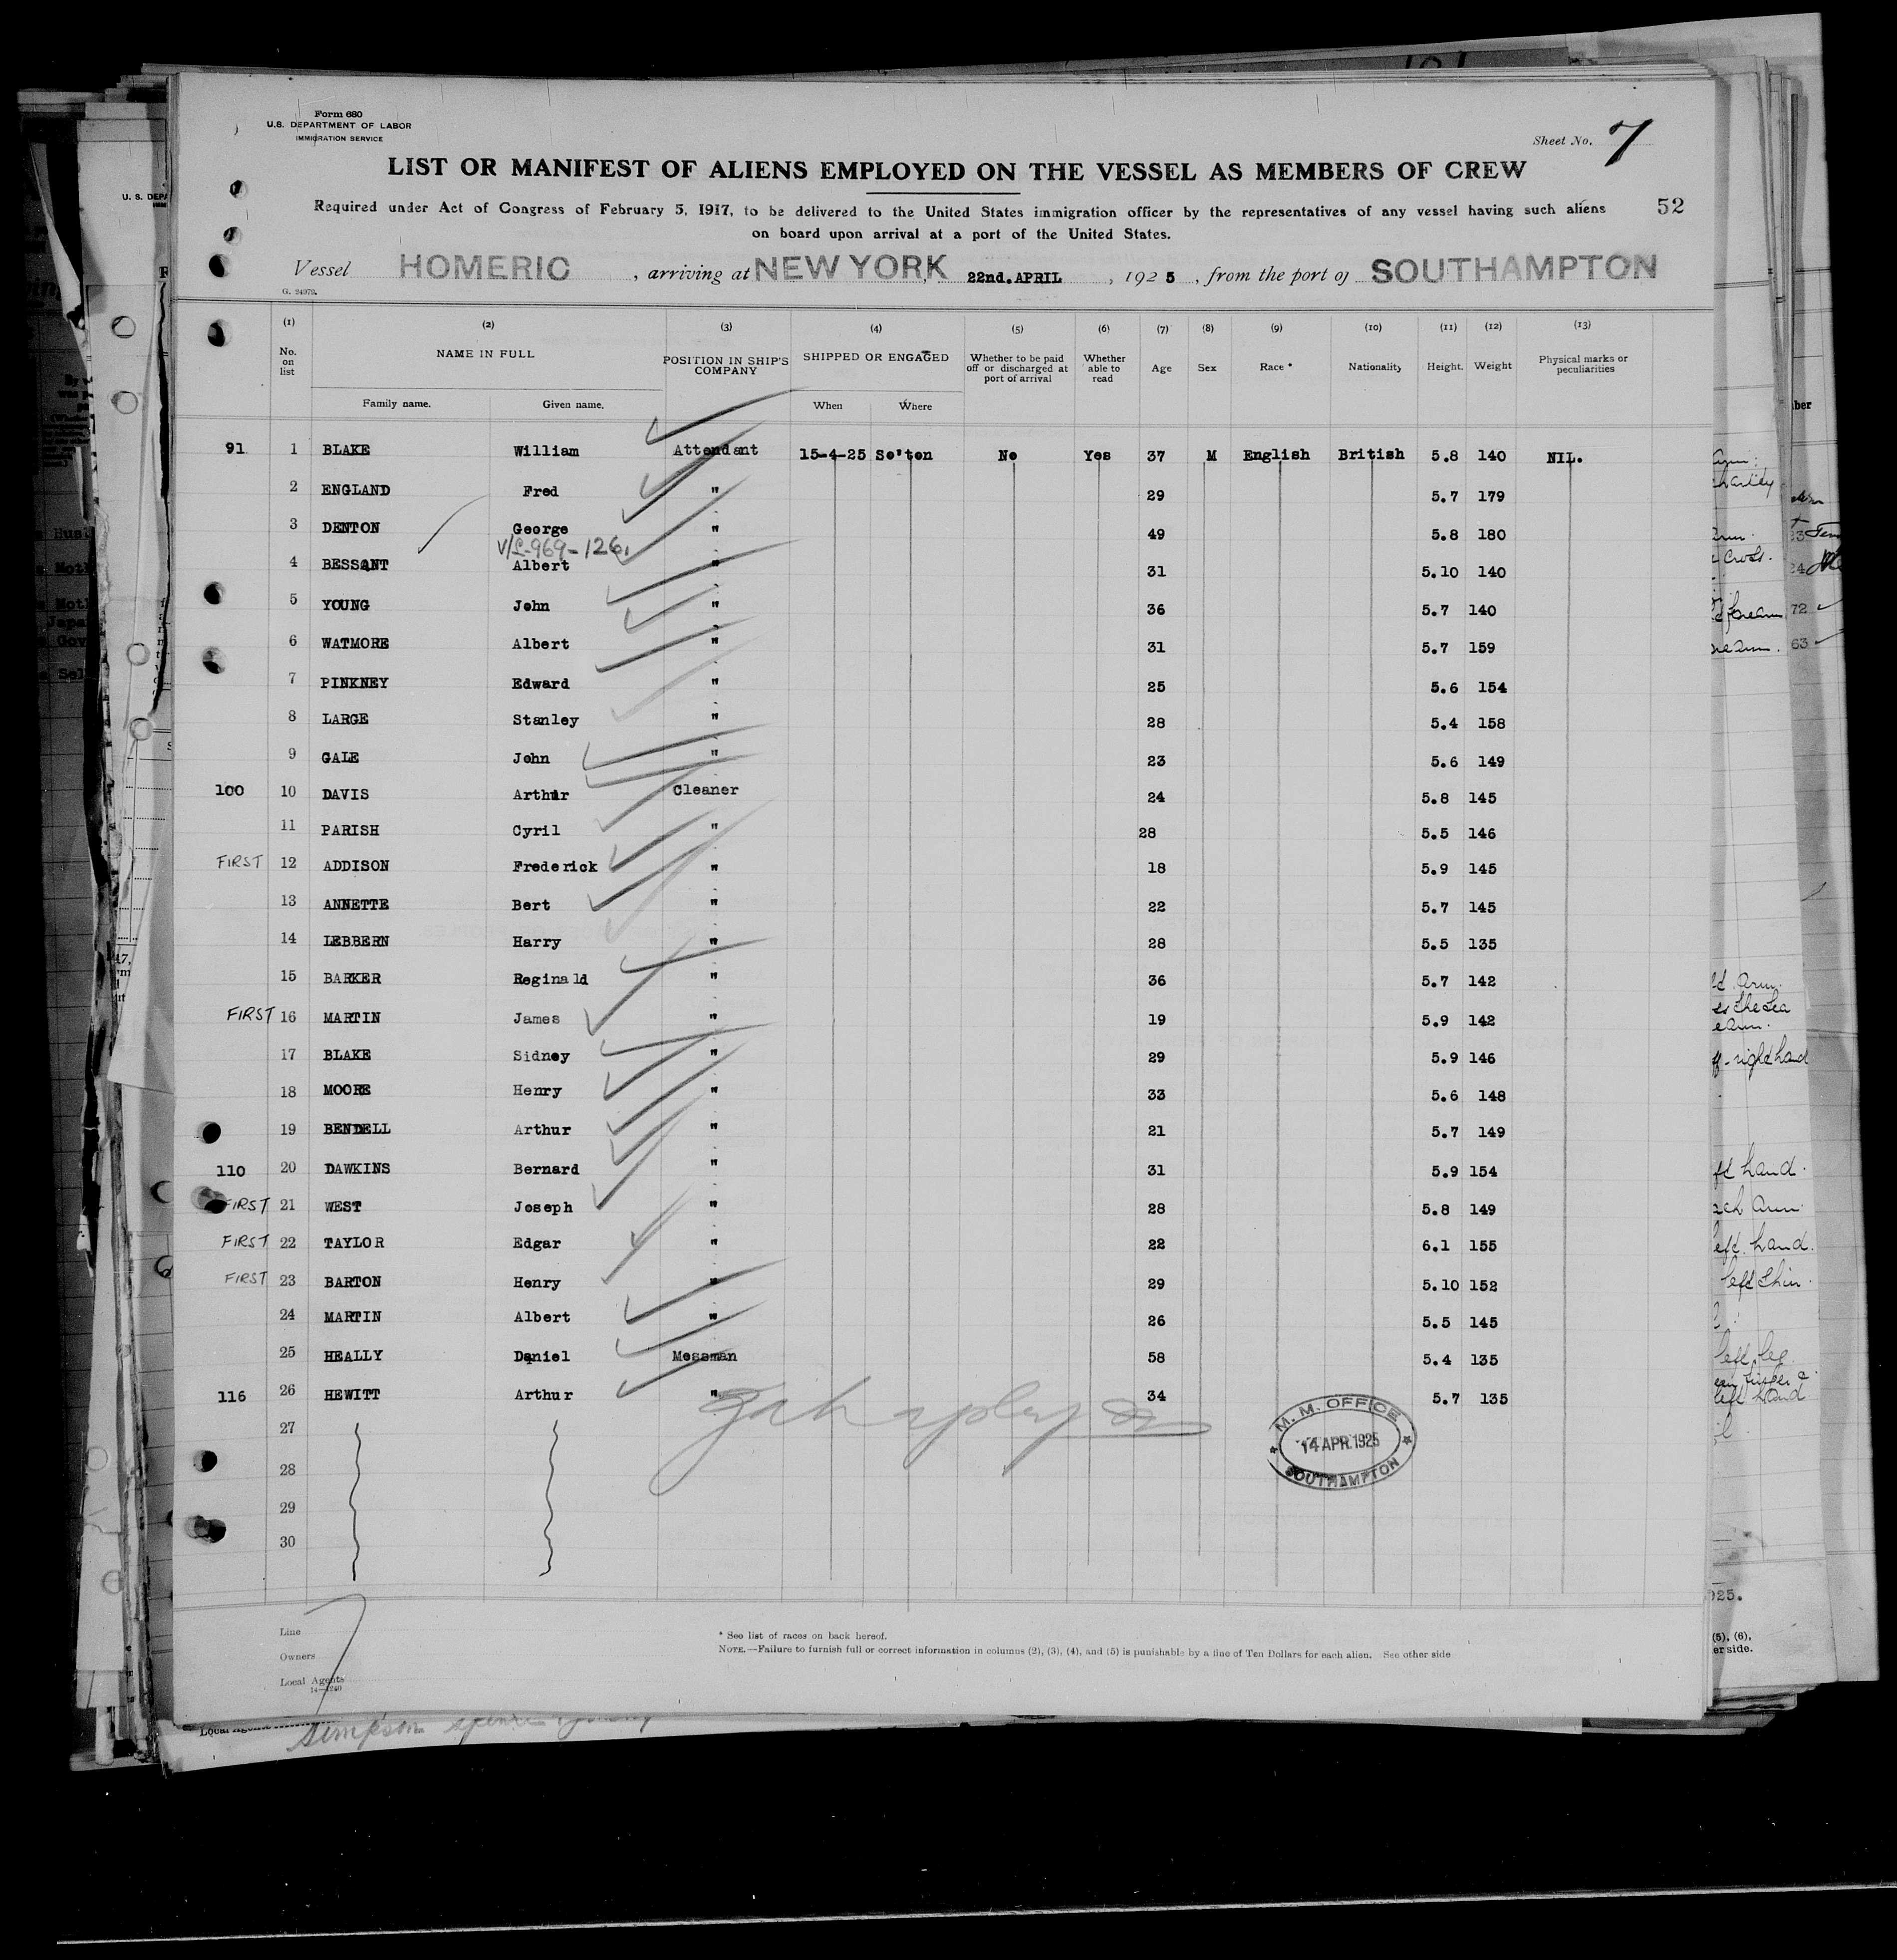 Form 680
U.S. DEPARTMENT OF LABOR
IMMIGRATION SERVICE
Sheet No. 7
LIST OR MANIFEST OF ALIENS EMPLOYED ON THE VESSEL AS MEMBERS OF CREW
52
Required under Act of Congress of February 5, 1917, to be delivered to the United States immigration officer by the representatives of any vessel having such aliens
on board upon arrival at a port of the United States.
Vessel HOMERIC, arriving at NEW YORK 22nd. APRIL, 1925, from the port of SOUTHAMPTON
G. 24979.
(1) (2) (3) (4) (5) (6) (7) (8) (9) (10) (11) (12) (13)
No. on list NAME IN FULL POSITION IN SHIP'S COMPANY SHIPPED OR ENGAGED Whether to be paid off or discharged at port of arrival Whether able to read Age Sex Race * Nationality Height. Weight Physical marks or peculiarities
Family name. Given name. When Where
91 1 BLAKE William Attendant 15-4-25 So'ton No Yes 37 M English British 5.8 140 NIL.
2 ENGLAND Fred " 29 5.7 179
3 DENTON George " 49 5.8 180
V/L-969-126.
4 BESSANT Albert " 31 5.10 140
5 YOUNG John " 36 5.7 140
6 WATMORE Albert " 31 5.7 159
7 PINKNEY Edward " 25 5.6 154
8 LARGE Stanley " 28 5.4 158
9 GALE John " 23 5.6 149
100 10 DAVIS Arthur Cleaner 24 5.8 145
11 PARISH Cyril " 28 5.5 146
FIRST 12 ADDISON Frederick " 18 5.9 145
13 ANNETTE Bert " 22 5.7 145
14 LEBBERN Harry " 28 5.5 135
15 BARKER Reginald " 36 5.7 142
FIRST 16 MARTIN James " 19 5.9 142
17 BLAKE Sidney " 29 5.9 146
18 MOORE Henry " 33 5.6 148
19 BENDELL Arthur " 21 5.7 149
110 20 DAWKINS Bernard " 31 5.9 154
FIRST 21 WEST Joseph " 28 5.8 149
FIRST 22 TAYLOR Edgar " 22 6.1 155
FIRST 23 BARTON Henry " 29 5.10 152
24 MARTIN Albert " 26 5.5 145
25 HEALLY Daniel Messman 58 5.4 135
116 26 HEWITT Arthur " 34 5.7 135
27
28
29
30
M. M. OFFICE
14 APR. 1925
SOUTHAMPTON
Line
Owners
Local Agents
14-1240
* See list of races on back hereof.
NOTE.—Failure to furnish full or correct information in columns (2), (3), (4), and (5) is punishable by a fine of Ten Dollars for each alien. See other side
Simpson